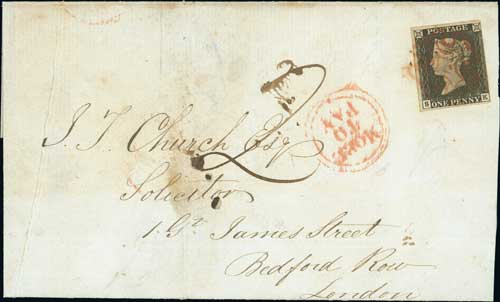 POSTAGE
ONE PENNY
2
PAX
J. T. Church Esqr
Solicitor
1 Gt James Street
Bedford Row
London